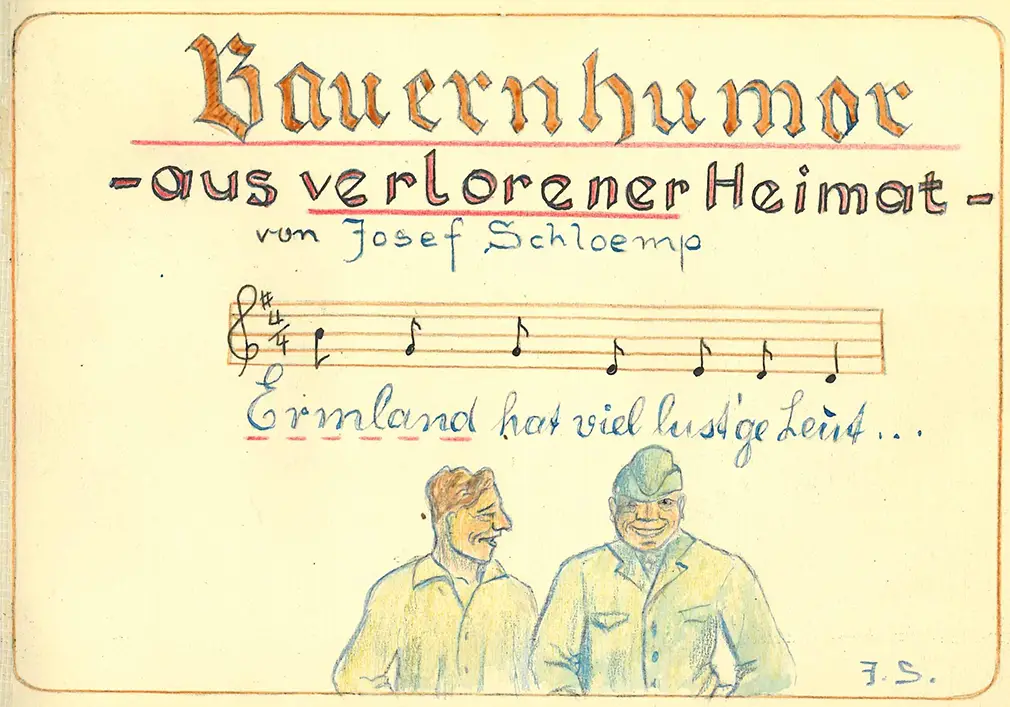 Bauernhumor
- aus verlorener Heimat -
von Josef Schloemp
# 4/4
Ermland hat viel lust'ge Leut...
J. S.